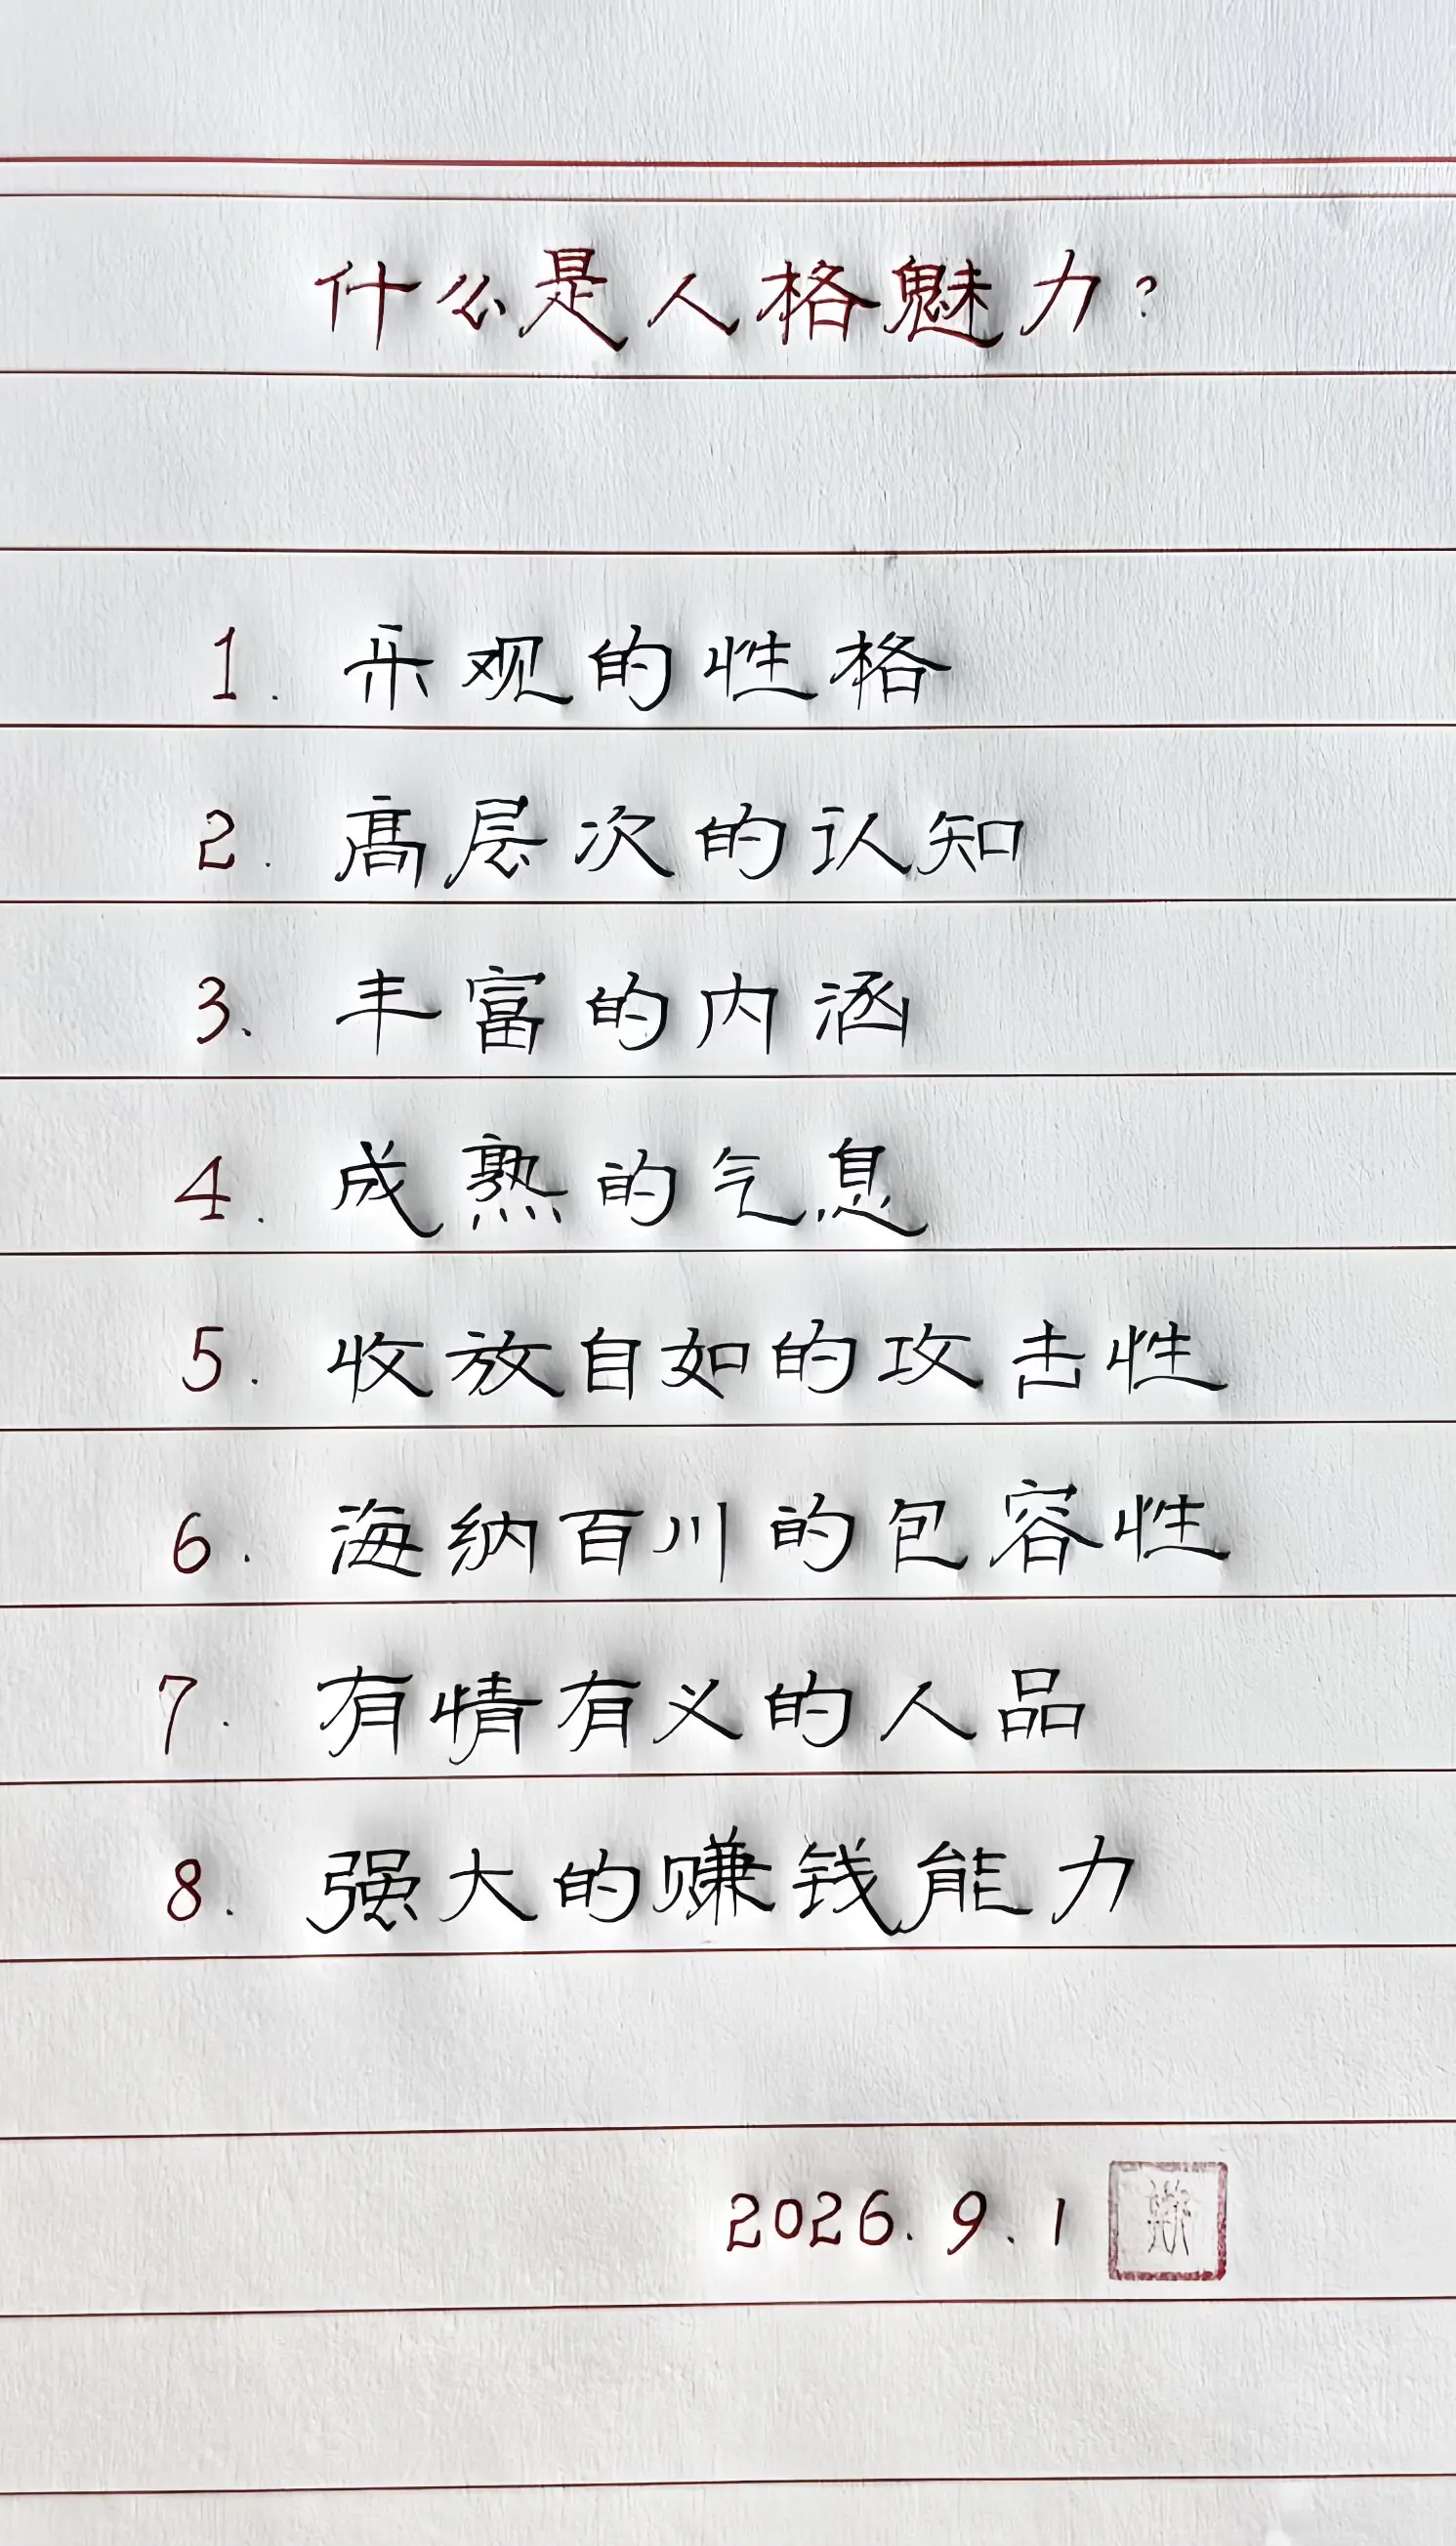 什么是人格魅力?
1. 乐观的性格
2. 高层次的认知
3、丰富的内涵
4. 成熟的气息
5. 收放自如的攻击性
6. 海纳百川的包容性
7. 有情有义的人品
8. 强大的赚钱能力
2026.9.1